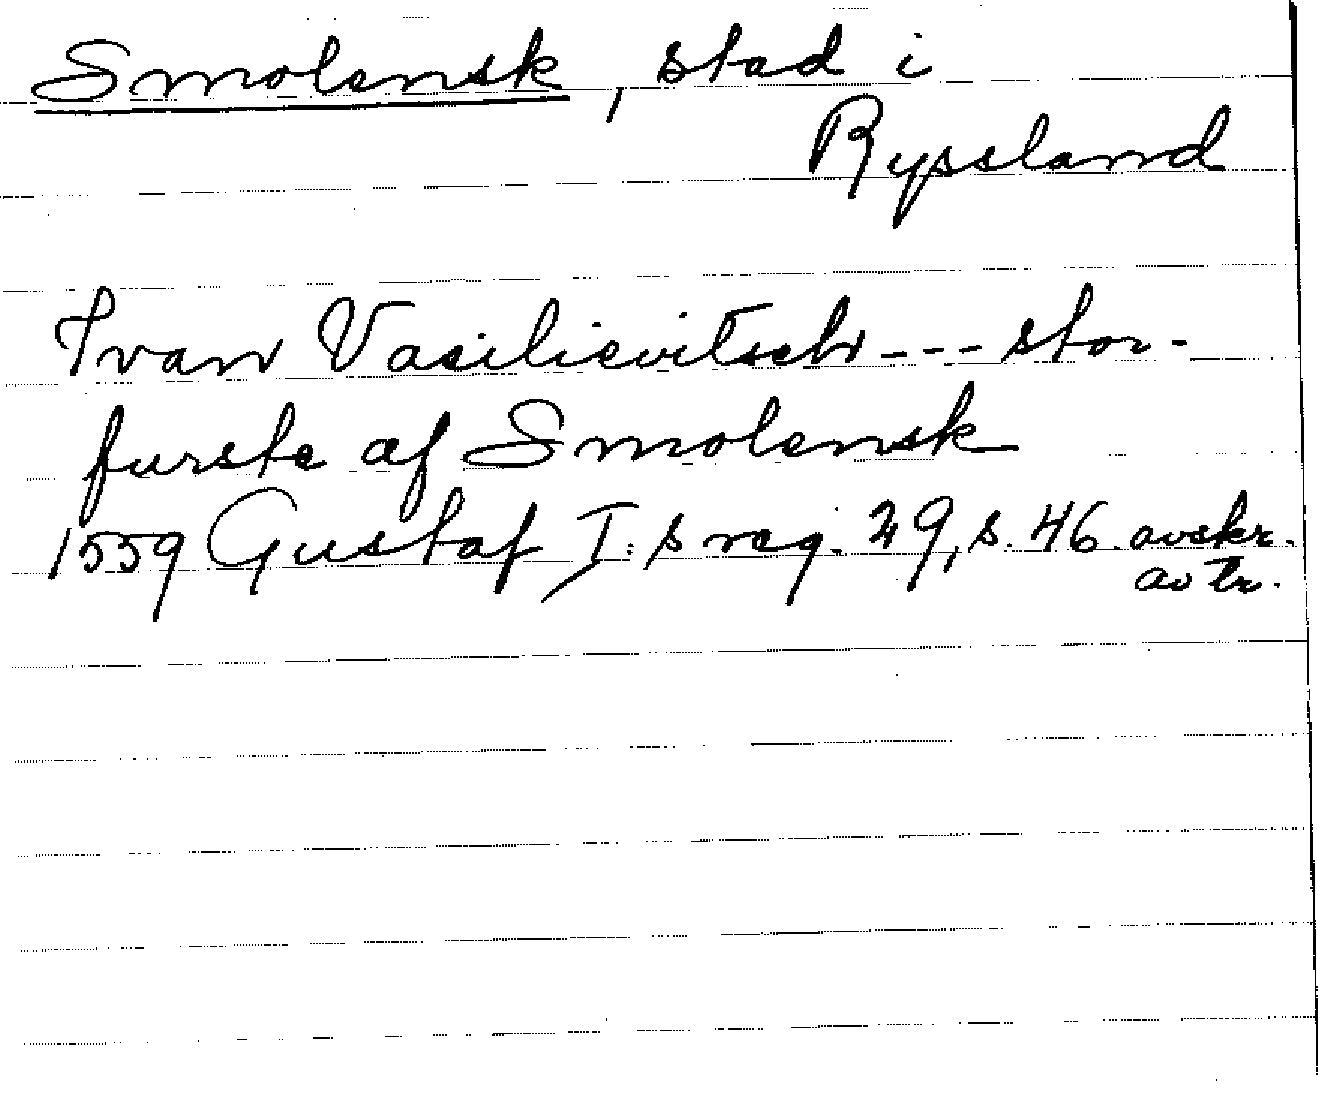 Smolensk, stad i
Ryssland
Ivan Vasilievitsch --- stor-
furste af Smolensk
1559 Gustaf I:s reg. 29, s. 46. avskr.
av tr.